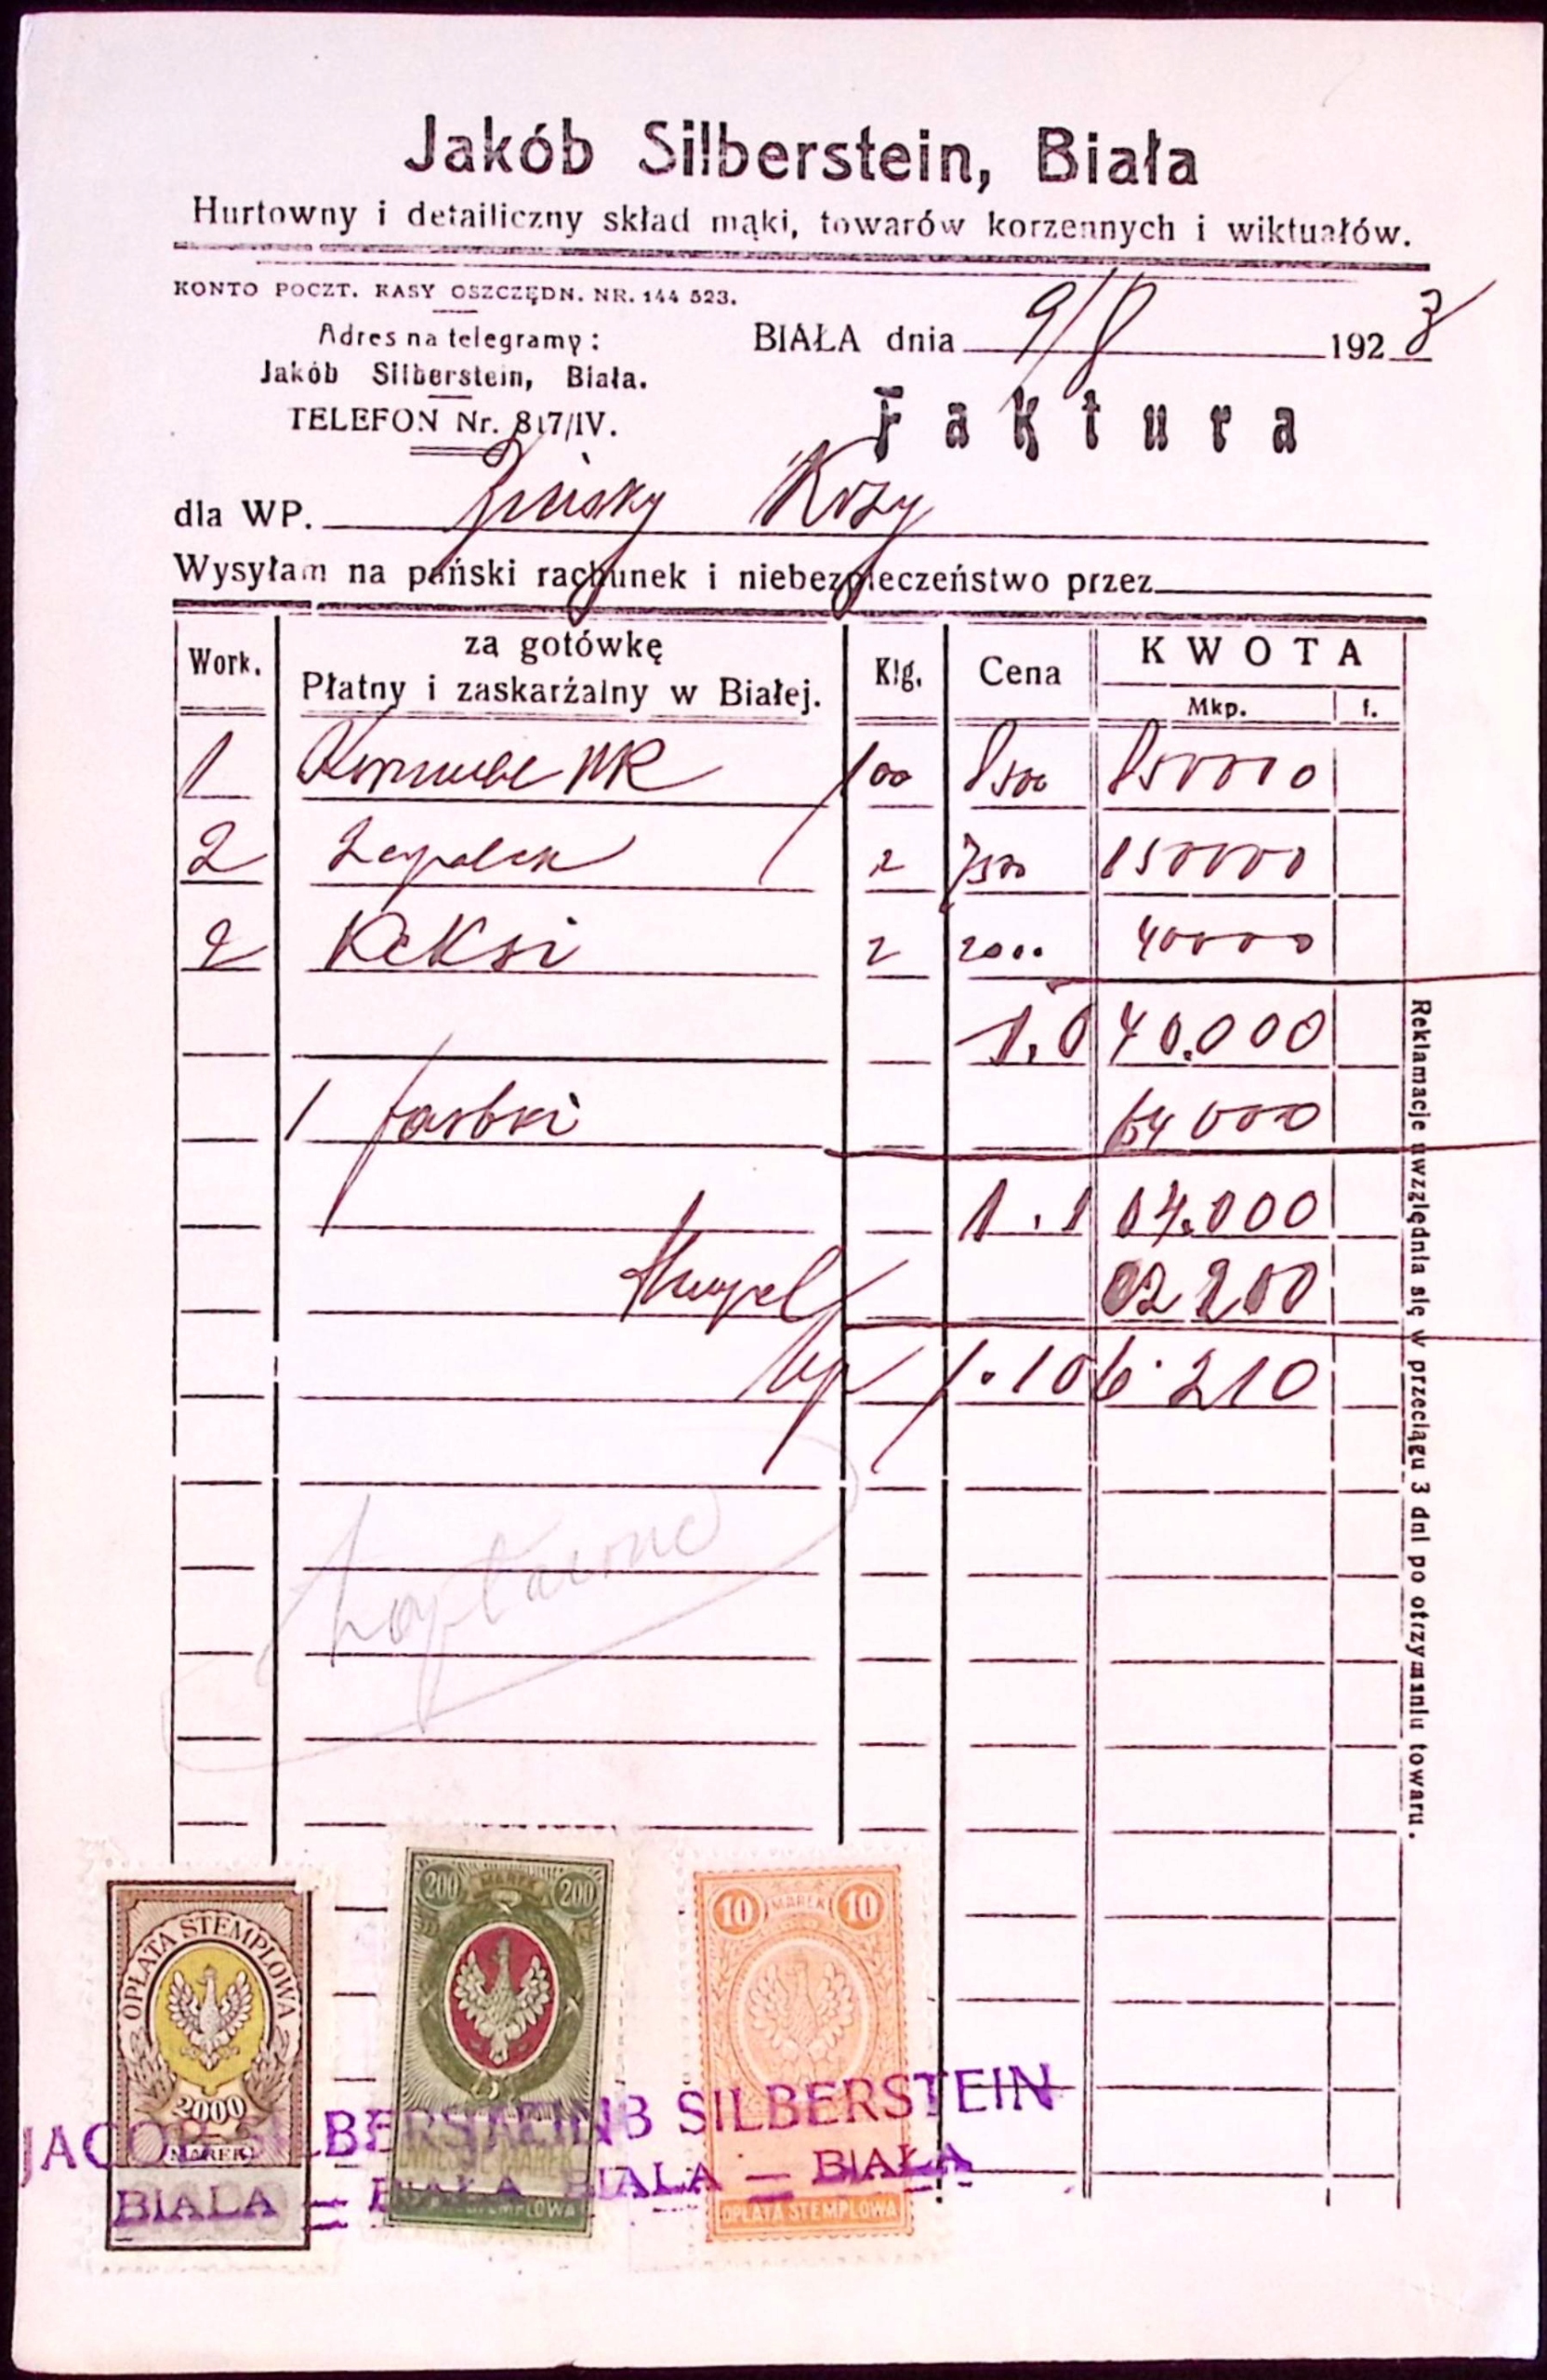 Jakób Silberstein, Biała
Hurtowny i detailiczny skład mąki, towarów korzennych i wiktuałów.
KONTO POCZT. KASY OSZCZĘDN. NR. 144 523.
Adres na telegramy:
Jakób Silberstein, Biała.
TELEFON Nr. 817/IV.
BIAŁA dnia 9/8 1923
Faktura
dla WP. Kozy
Wysyłam na pański rachunek i niebezpieczeństwo przez
Work. za gotówkę Płatny i zaskarżalny w Białej. Klg. Cena KWOTA Mkp. f.
1 100 8500 850000
2 Zapalek 2 7500 150000
2 Keksi 2 2000 40000
1.040.000
1 farbki 64000
1.104.000
Stempel 02210
Mp 1.106.210
Zapłacono
Reklamacje uwzględnia się w przeciągu 3 dni po otrzymaniu towaru.
OPŁATA STEMPLOWA
2000
MAREK
200 MAREK 200
DWIEŚCIE MAREK
OPŁATA STEMPLOWA
10 MAREK 10
OPŁATA STEMPLOWA
JACOB SILBERSTEIN
BIALA — BIAŁA
JACOB SILBERSTEIN
BIALA — BIAŁA